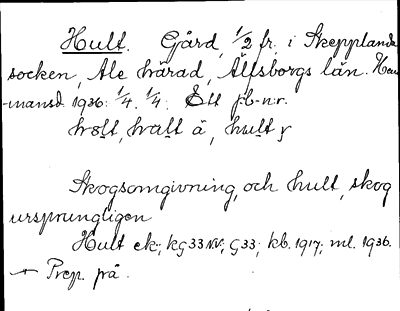 Hult. Gård, 1/2 fr. i Skepplanda
socken, Ale härad, Älfsborgs län. Hem-
mansd. 1936: 1/4. 1/4. Ett jb-n:r.
hult y
Skogsomgivning, och hult, skog
ursprungligen
Hult ek; kG33NV; G33; kb. 1917; ml. 1936.
Prep. på.